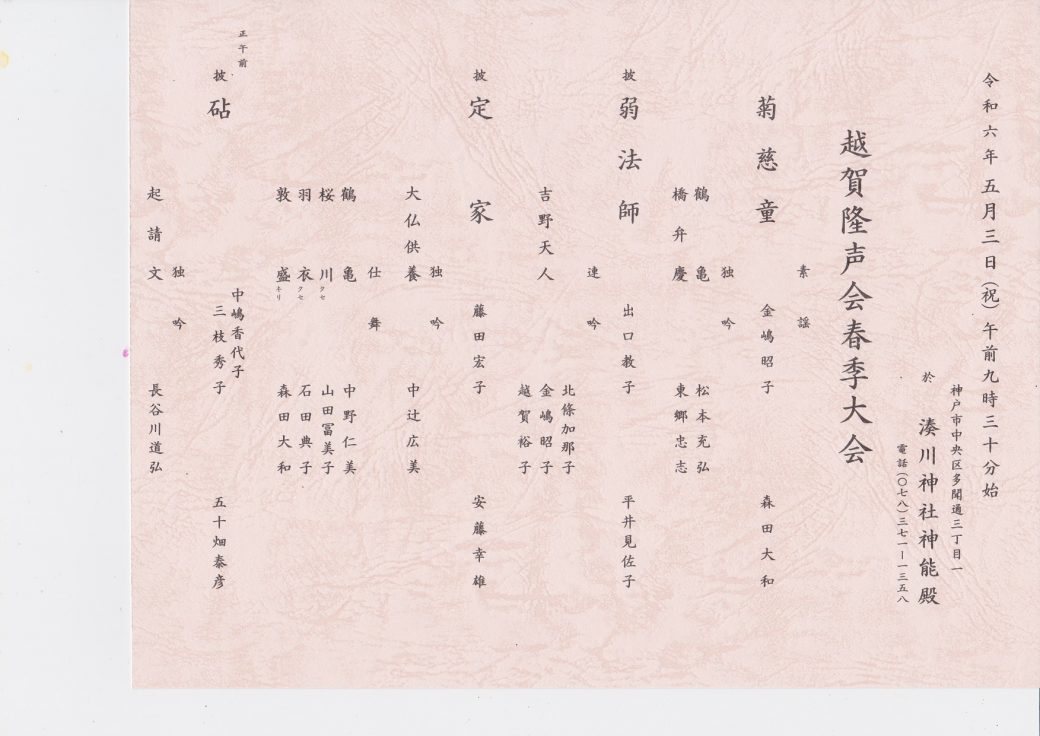 令和六年五月三日(祝)午前九時三十分始
神戸市中央区多聞通三丁目一
於 湊川神社神能殿
電話(〇七八)三七一ー一三五八
越賀隆声会春季大会
素謡
菊慈童 金嶋昭子 森田大和
独吟
鶴亀 松本充弘
橋弁慶 東郷忠志
披 弱法師 出口教子 平井見佐子
連吟
北條加那子
吉野天人 金嶋昭子
越賀裕子
披 定家 藤田宏子 安藤幸雄
独吟
大仏供養 中辻広美
仕舞
鶴亀 中野仁美
桜川クセ 山田冨美子
羽衣クセ 石田典子
敦盛キリ 森田大和
正午前
中嶋香代子
披 砧 三枝秀子 五十畑泰彦
独吟
起請文 長谷川道弘